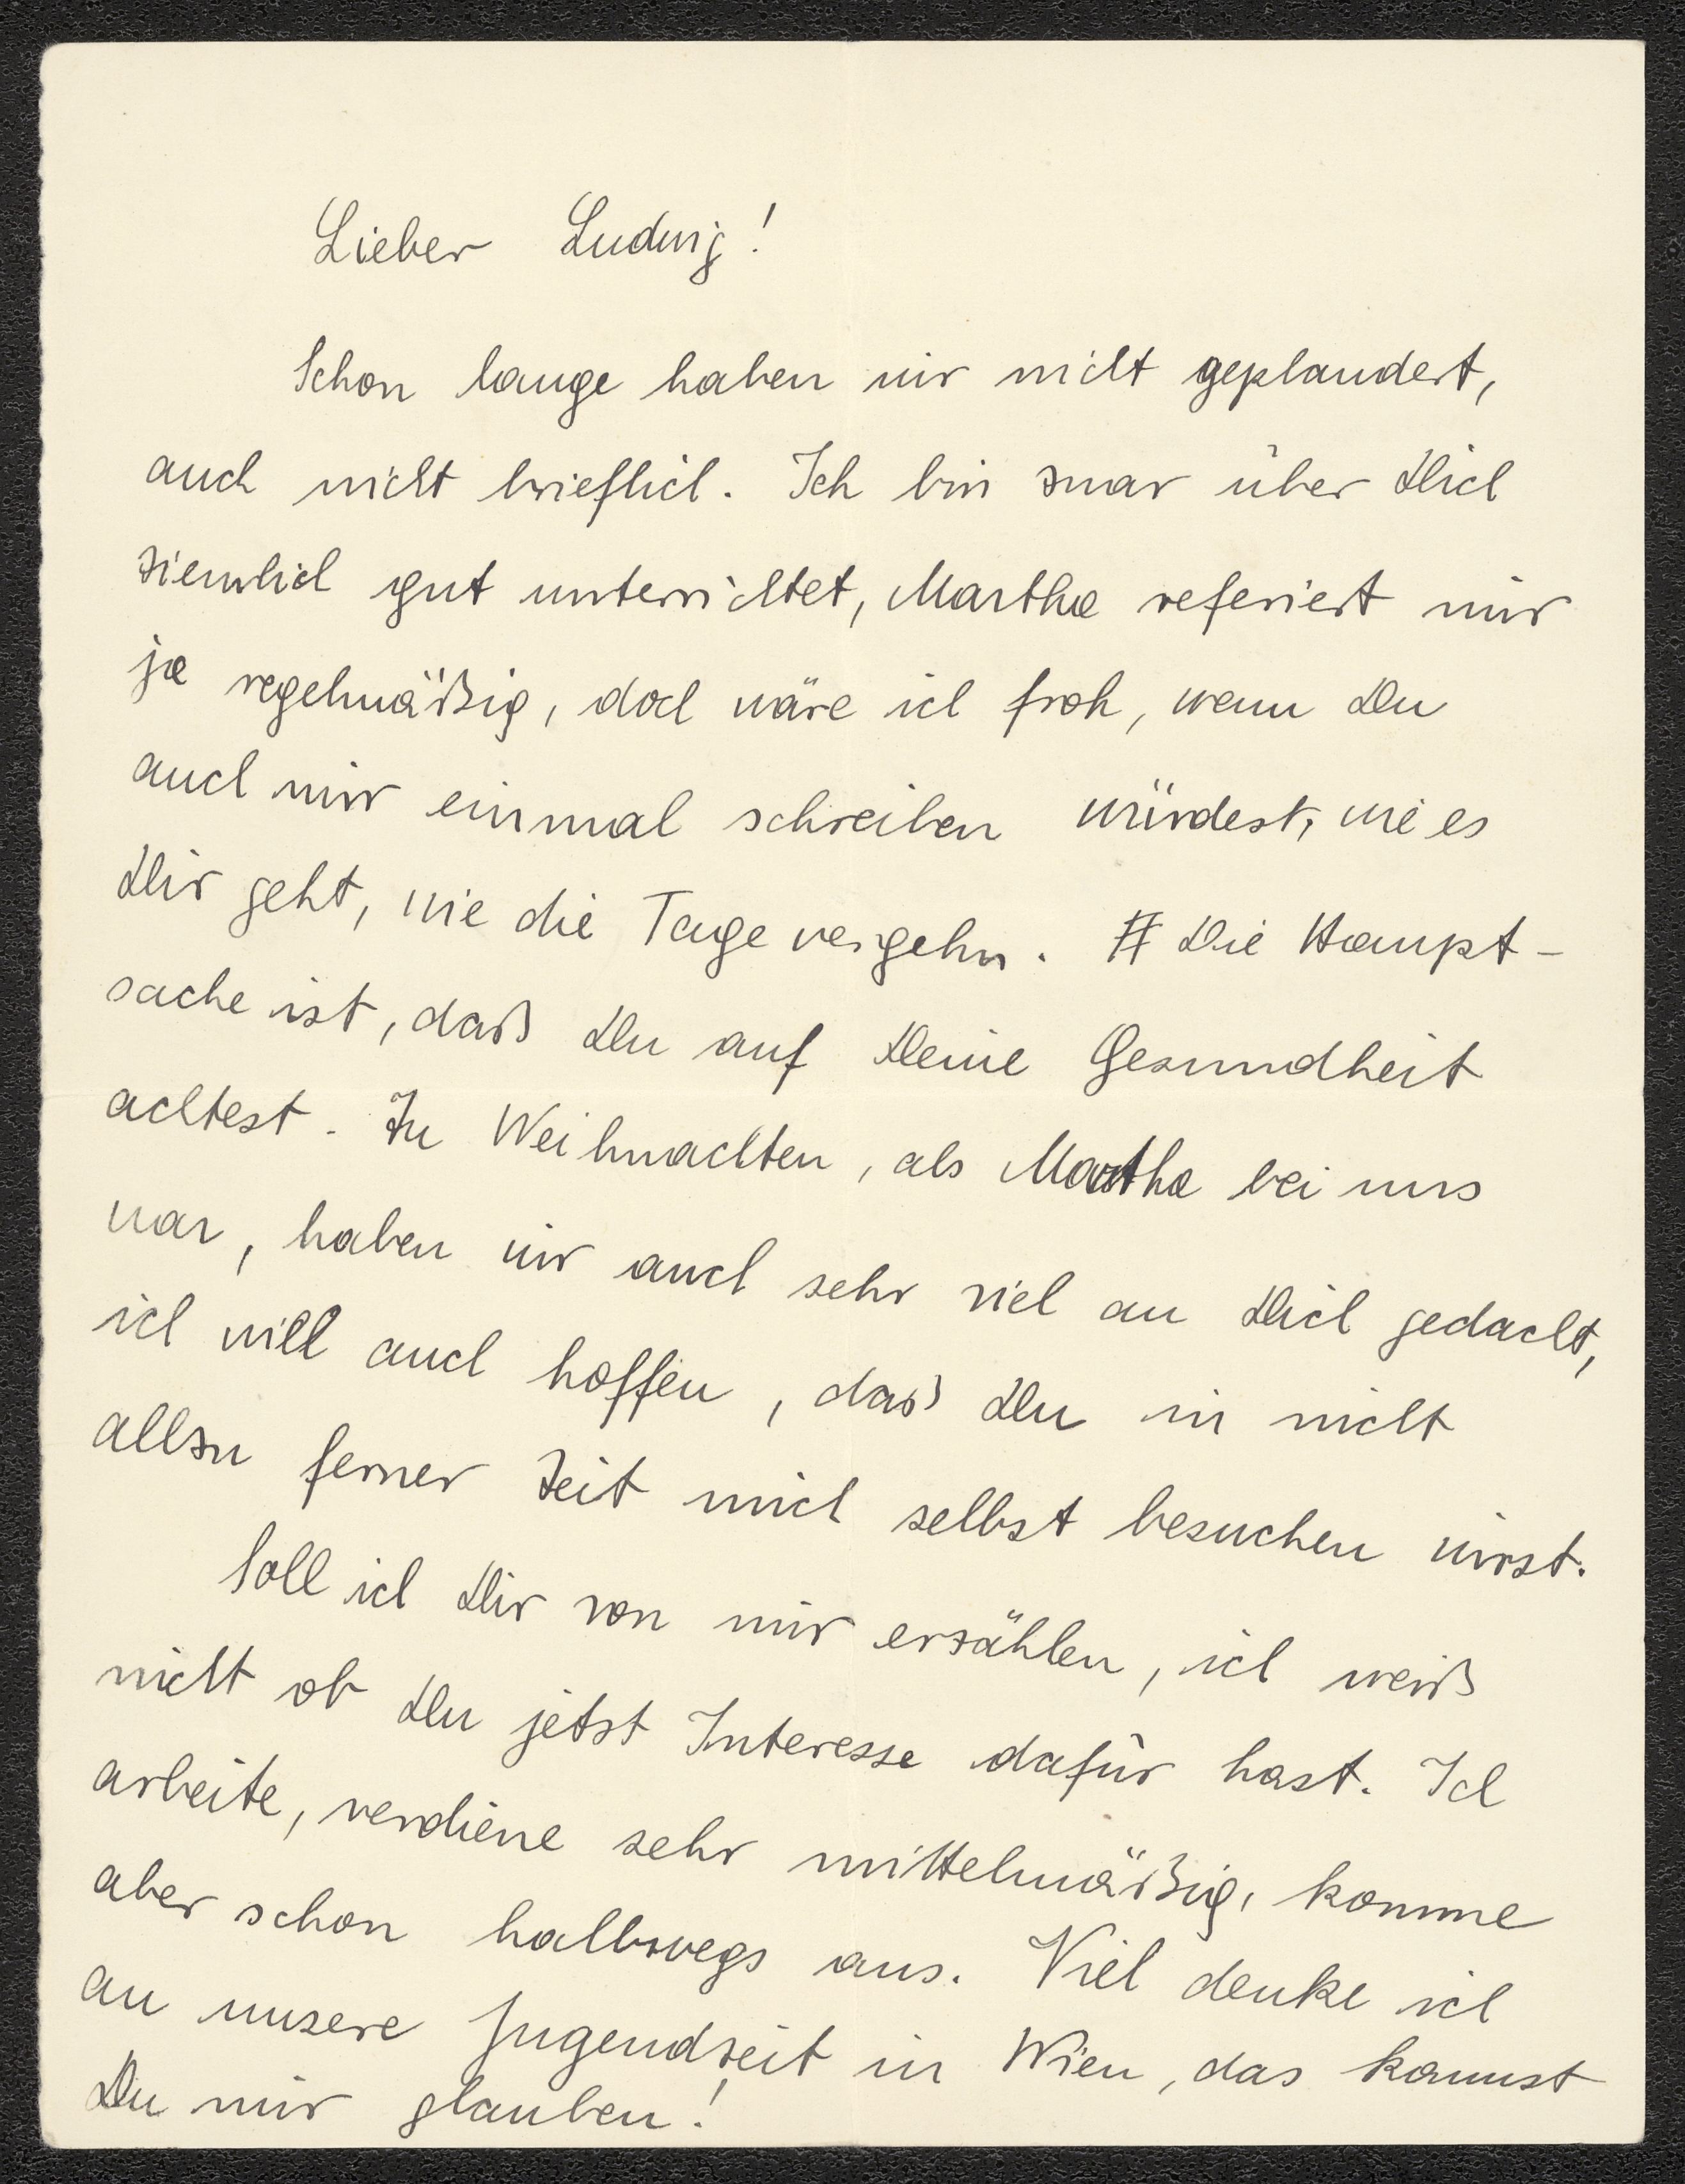 Lieber Ludwig!
Schon lange haben wir nicht geplaudert,
auch nicht brieflich. Ich bin zwar über Dich
ziemlich gut unterrichtet, Martha referiert mir
ja regelmäßig, doch wäre ich froh, wenn Du
auch mir einmal schreiben würdest, wie es
Dir geht, wie die Tage vergehn. Die Haupt-
sache ist, daß Du auf Deine Gesundheit
achtest. Zu Weihnachten, als Martha bei uns
war, haben wir auch sehr viel an Dich gedacht,
ich will auch hoffen, daß Du in nicht
allzu ferner Zeit mich selbst besuchen wirst.
Soll ich Dir von mir erzählen, ich weiß
nicht ob Du jetzt Interesse dafür hast. Ich
arbeite, verdiene sehr mittelmäßig, komme
aber schon halbwegs aus. Viel denke ich
an unsere Jugendzeit in Wien, das kannst
Du mir glauben!